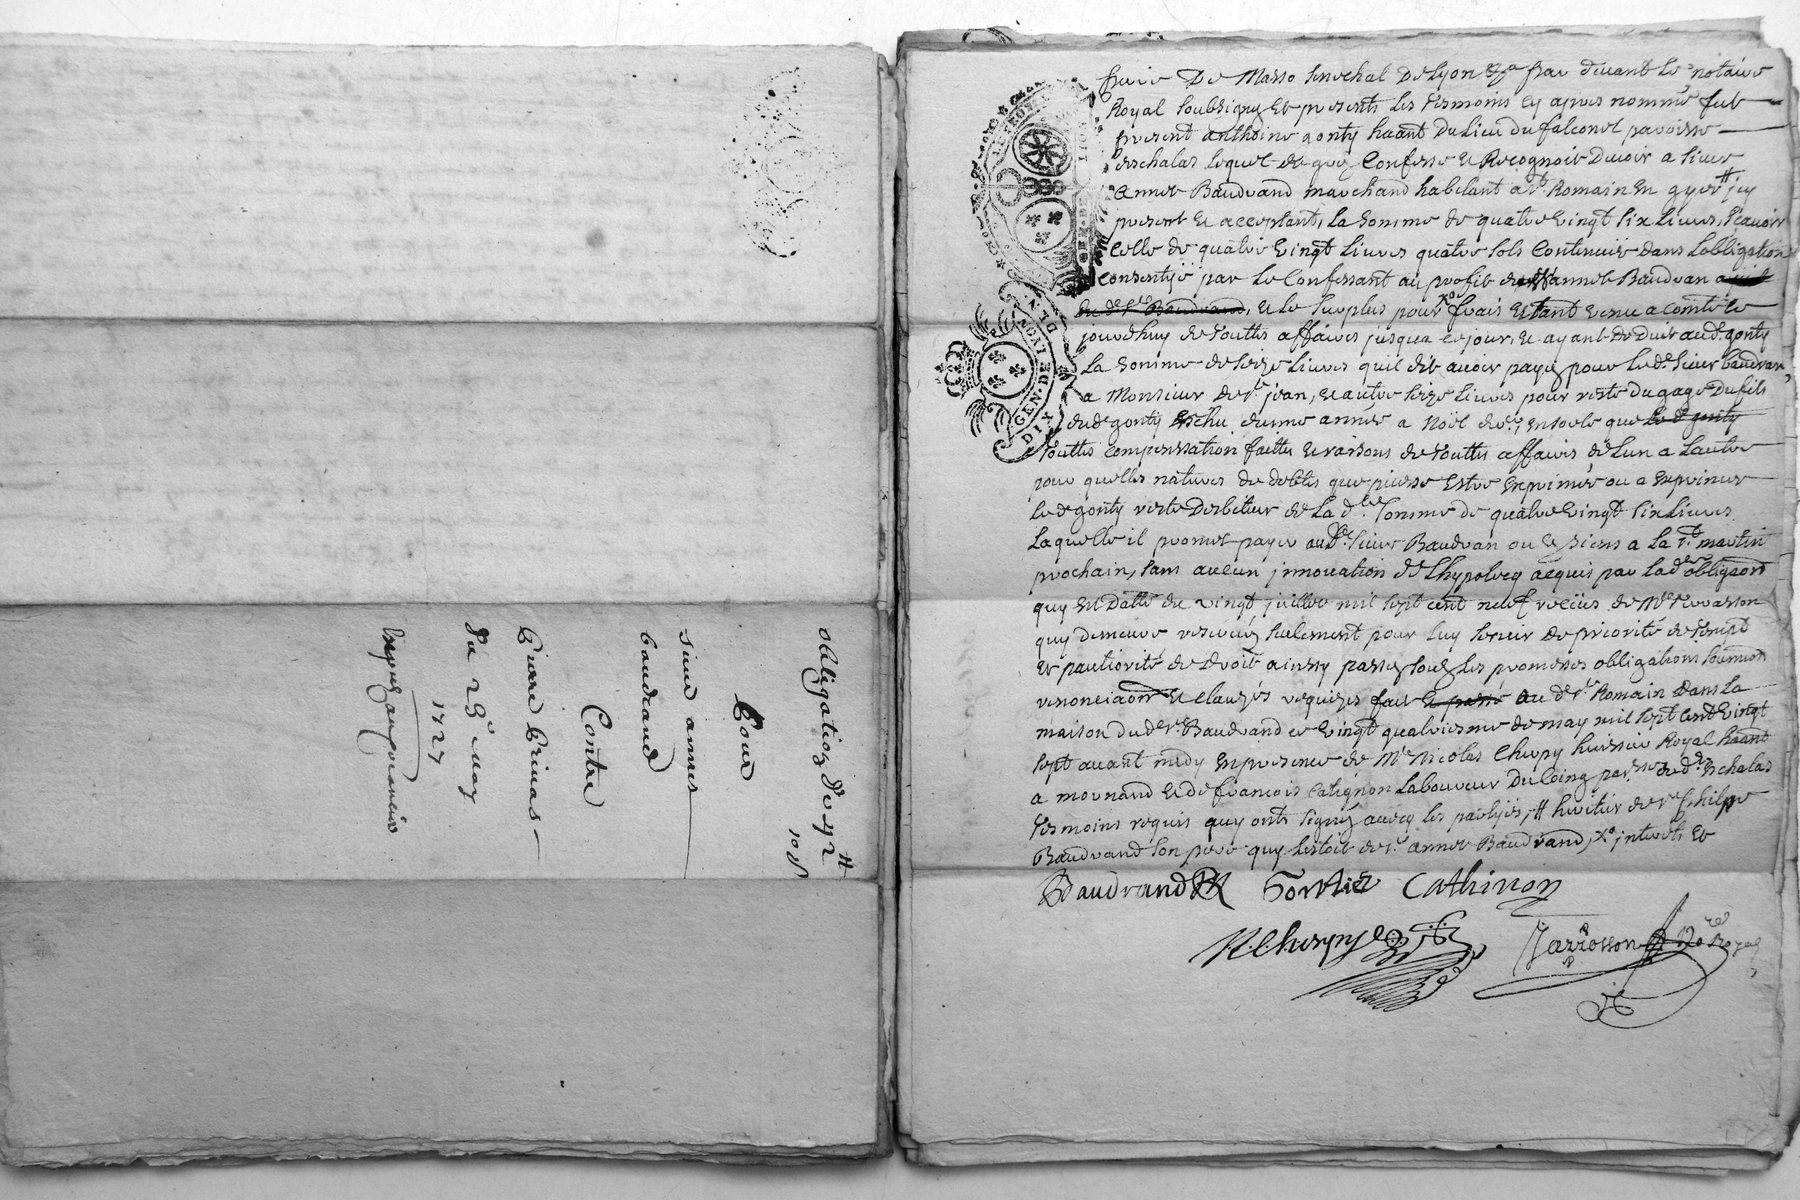 obligation de 92 ₶
10 s
Pour
sieur annet
baudrand
Contre
Pierre Primas
du 29e may
1727
GEN. DE LYON
DIX
DE
GEN. DE LYON
De Masso senechal De lyon par devant le notaire
Royal soubsigné et presents les tesmoins cy apres nommé fut
present anthoine gonty haant du lieu du falconet parroisse
deschalas lequel de gré Confesse et Recognoit devoir a sieur
annet Baudrand marchand habitant a st Romain en gyer jcy
present et acceptant, la somme de quatre vingt six livres, scavoir
celle de quatre vingt livres quatre sols contenue dans l'obligation
consentye par le Confessant au profit du annet Baudran
du dt sr Baudrand, et le surplus pour frais estant venu a comte le
jourdhuy de touttes affaires jusqua ce jour, et ayant deduit aud gonty
la somme de seize livres quil dit avoir payé pour led. sieur baudran
a Monsieur de st jean, et autre seize livres pour reste du gage du fils
dud gonty eschu dunne année a noël der, ensorte que le d gonty
touttes compensation faitte et raisons de touttes affaires de lun a lautre
pour quelles natures de debtes que puisse estre exprimés ou a exprimer
led gonty reste debiteur de la dte somme de quatre vingt six livres
laquelle il promet payer aud. sieur Baudran ou es siens a la st martin
prochain, sans aucun jnnovation de lhypoteq acquis par lad. obligaon
quy est datté du vingt juillet mil sept cent neuf reçües de Me
quy demeure reservé seulement pour luy servir de priorité de tempt
et pautiorité de droit ainssy passé soub les promesses obligations soumion
renonciaon et clauzes requizes fait et passé au d st Romain dans la
maison dud sr Baudrand ce vingt quatriesme de may mil sept cent vingt
sept avant midy en presence de Me Nicolas Cherpy huissier Royal haant
a mornand et de francois Catignon laboureur du Coing parsse dud. Eschalas
tesmoins requis quy onts signés avecq les partyes, ₶ heritier de sr philipe
Baudrand son pere quy lestoit de sr annet Baudrand, jnterets et
Baudrand Gontier Cathinon
N Cherpy Jarrosson Nore Royal